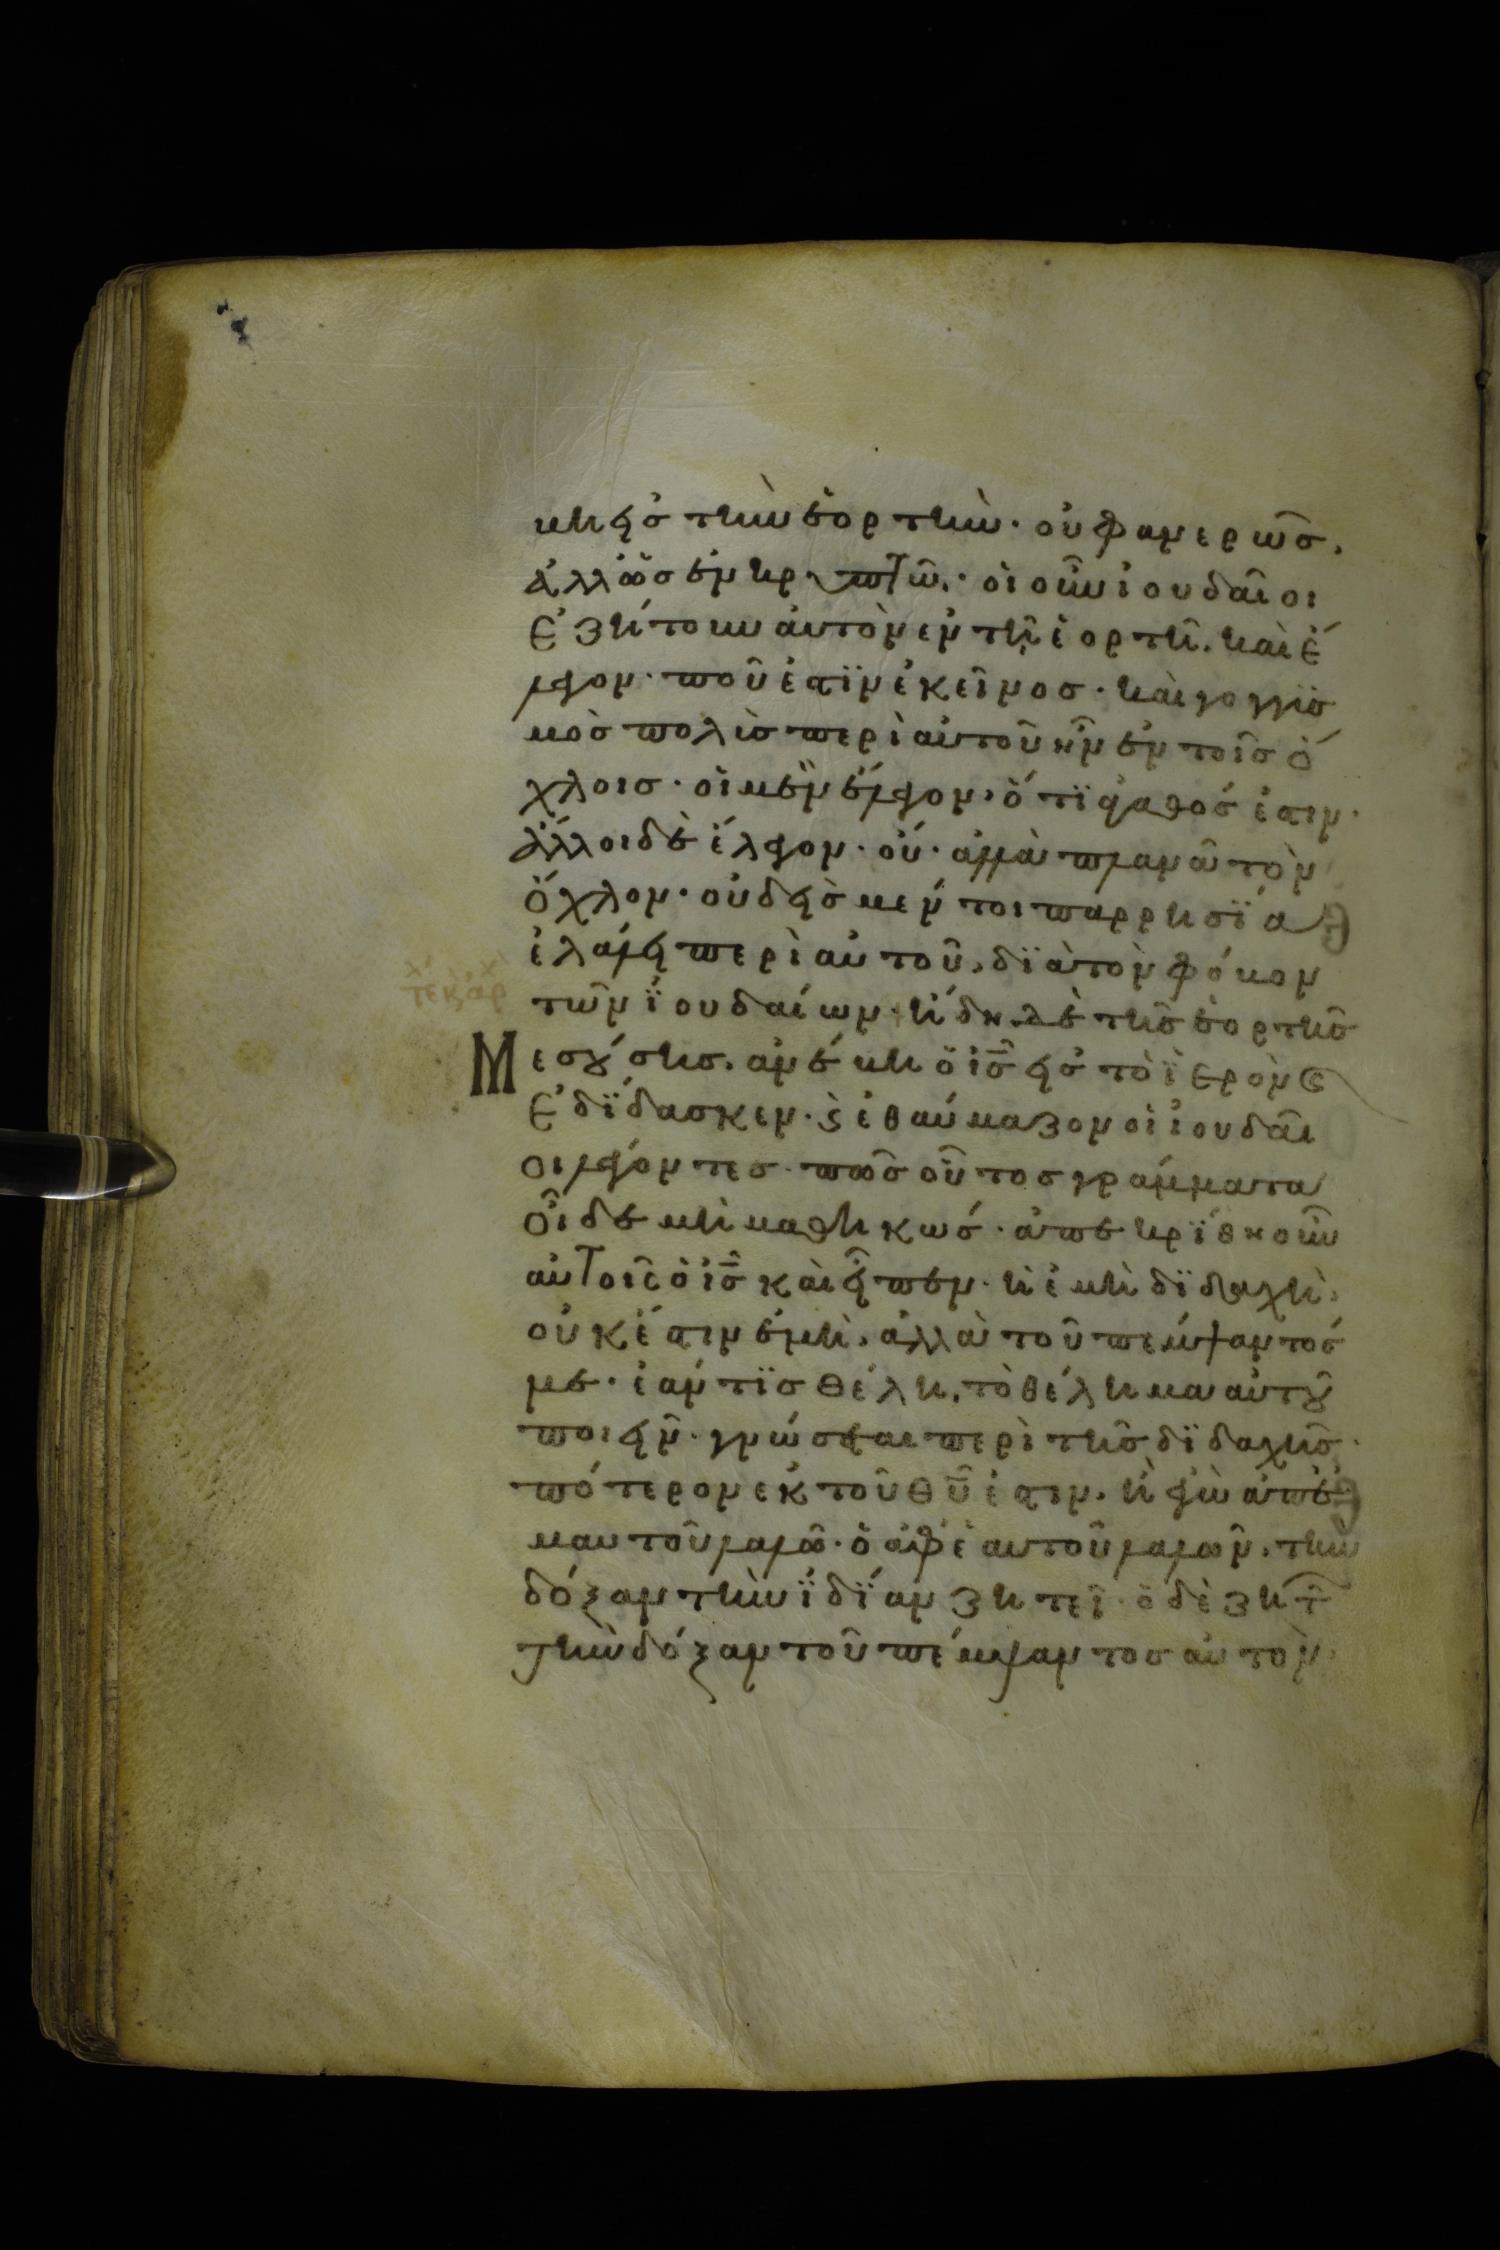 βη εἰσ τὴν ἑορτὴν· οὐ φανερῶσ,
ἀλλ' ὡσ ἐν κρυπτῶ· οἱ οὖν ἰουδαῖοι
ἐζήτουν αὐτὸν ἐν τῆ ἑορτῆ. καὶ ἔ
λεγον· ποῦ ἐστϊν ἐκεῖνοσ· καὶ γογγϋσ
μὸσ πολὺσ περὶ αὐτοῦ ἦν ἐν τοῖσ ὄ
χλοισ· οἱ μὲν ἔλεγον, ὅτϊ ἀγαθόσ ἐστιν·
ἄλλοι δὲ ἔλεγον· οὔ· ἀλλὰ πλανᾶ τὸν
ὄχλον· οὐδεὶσ μέντοι παρρησϊα
ἐλάλει περὶ αὐτοῦ, δϊὰ τὸν φόβον
τῶν ϊουδαίων· ἤδη δὲ τῆσ ἑορτῆσ
Μεσούσησ, ἀνέβη ὁ ἰσ̅ εἰσ τὸ ϊερὸν ϗ
ἐδϊδασκεν· ϗ ἐθαύμαζον οἱ ἰουδαῖ
οι λέγοντεσ· πῶσ οὗτοσ γράμματα
οἶδε μὴ μεμαθηκώσ· ἀπεκρϊθη οὖν
αὐτοῖσ ὁ ἰσ̅ καὶ εἶπεν· ἡ ἐμὴ δϊδαχὴ,
οὐκ ἔστιν ἐμὴ, ἀλλὰ τοῦ πέμψαντόσ
με· ἐάν τϊσ θέλη, τὸ θέλημα αὐτοῦ
ποιεῖν· γνώσεται περὶ τῆσ δϊδαχῆσ·
πότερον ἐκ τοῦ θυ̅ ἐστιν, ἢ ἐγὼ ἀπ' ἐ
μαυτοῦ λαλῶ· ὁ ἀφ' ἑαυτοῦ λαλῶν, τὴν
δόξαν τὴν ϊδϊαν ζητεῖ· ὁ δὲ ζητῶν
τὴν δόξαν τοῦ πέμψαντοσ αὐτὸν·